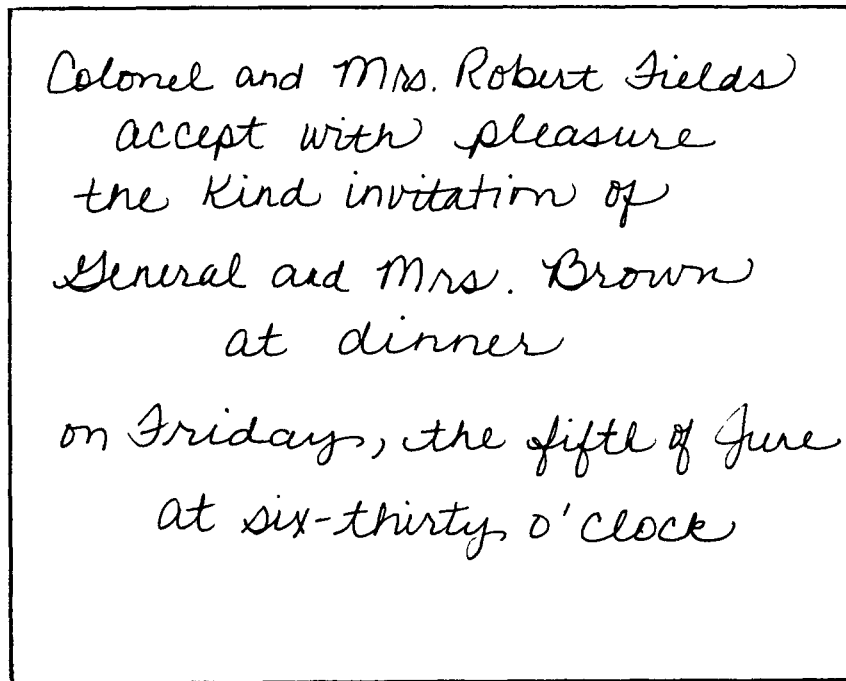 Colonel and Mrs. Robert Fields
accept with pleasure
the kind invitation of
General and Mrs. Brown
at dinner
on Friday, the fifth of June
at six-thirty o'clock